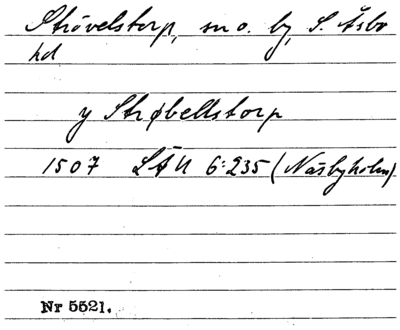 Strövelstorp, sn o. by, S. Åsbo
hd
y Strøbellstorp
1507 LÄU 6:235 (Näsbyholm)
Nr 5521.